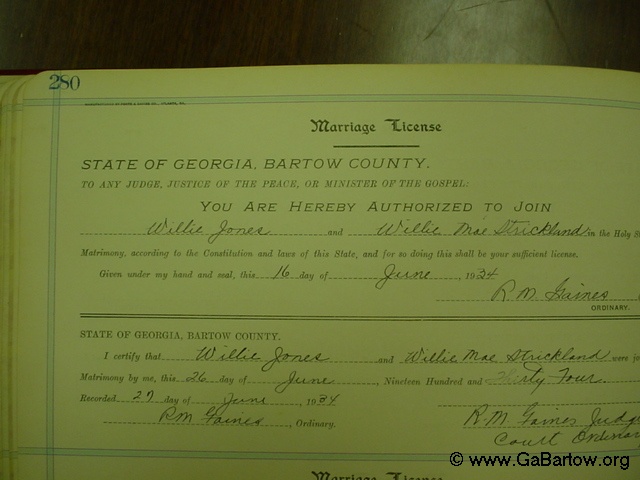 280
Marriage License
STATE OF GEORGIA, BARTOW COUNTY.
TO ANY JUDGE, JUSTICE OF THE PEACE, OR MINISTER OF THE GOSPEL:
YOU ARE HEREBY AUTHORIZED TO JOIN
Willie Jones and Willie Mae Strickland in the Holy
Matrimony, according to the Constitution and laws of this State, and for so doing this shall be your sufficient license.
Given under my hand and seal, this 16 day of June, 1934
R. M. Gaines
ORDINARY.
STATE OF GEORGIA, BARTOW COUNTY.
I certify that Willie Jones and Willie Mae Strickland were
Matrimony by me, this 26 day of June, Nineteen Hundred and Thirty Four.
Recorded 27 day of June, 1934
R M Gaines, Ordinary.
R. M. Gaines Judge
Court Ordinary
Marriage License
© www.GaBartow.org